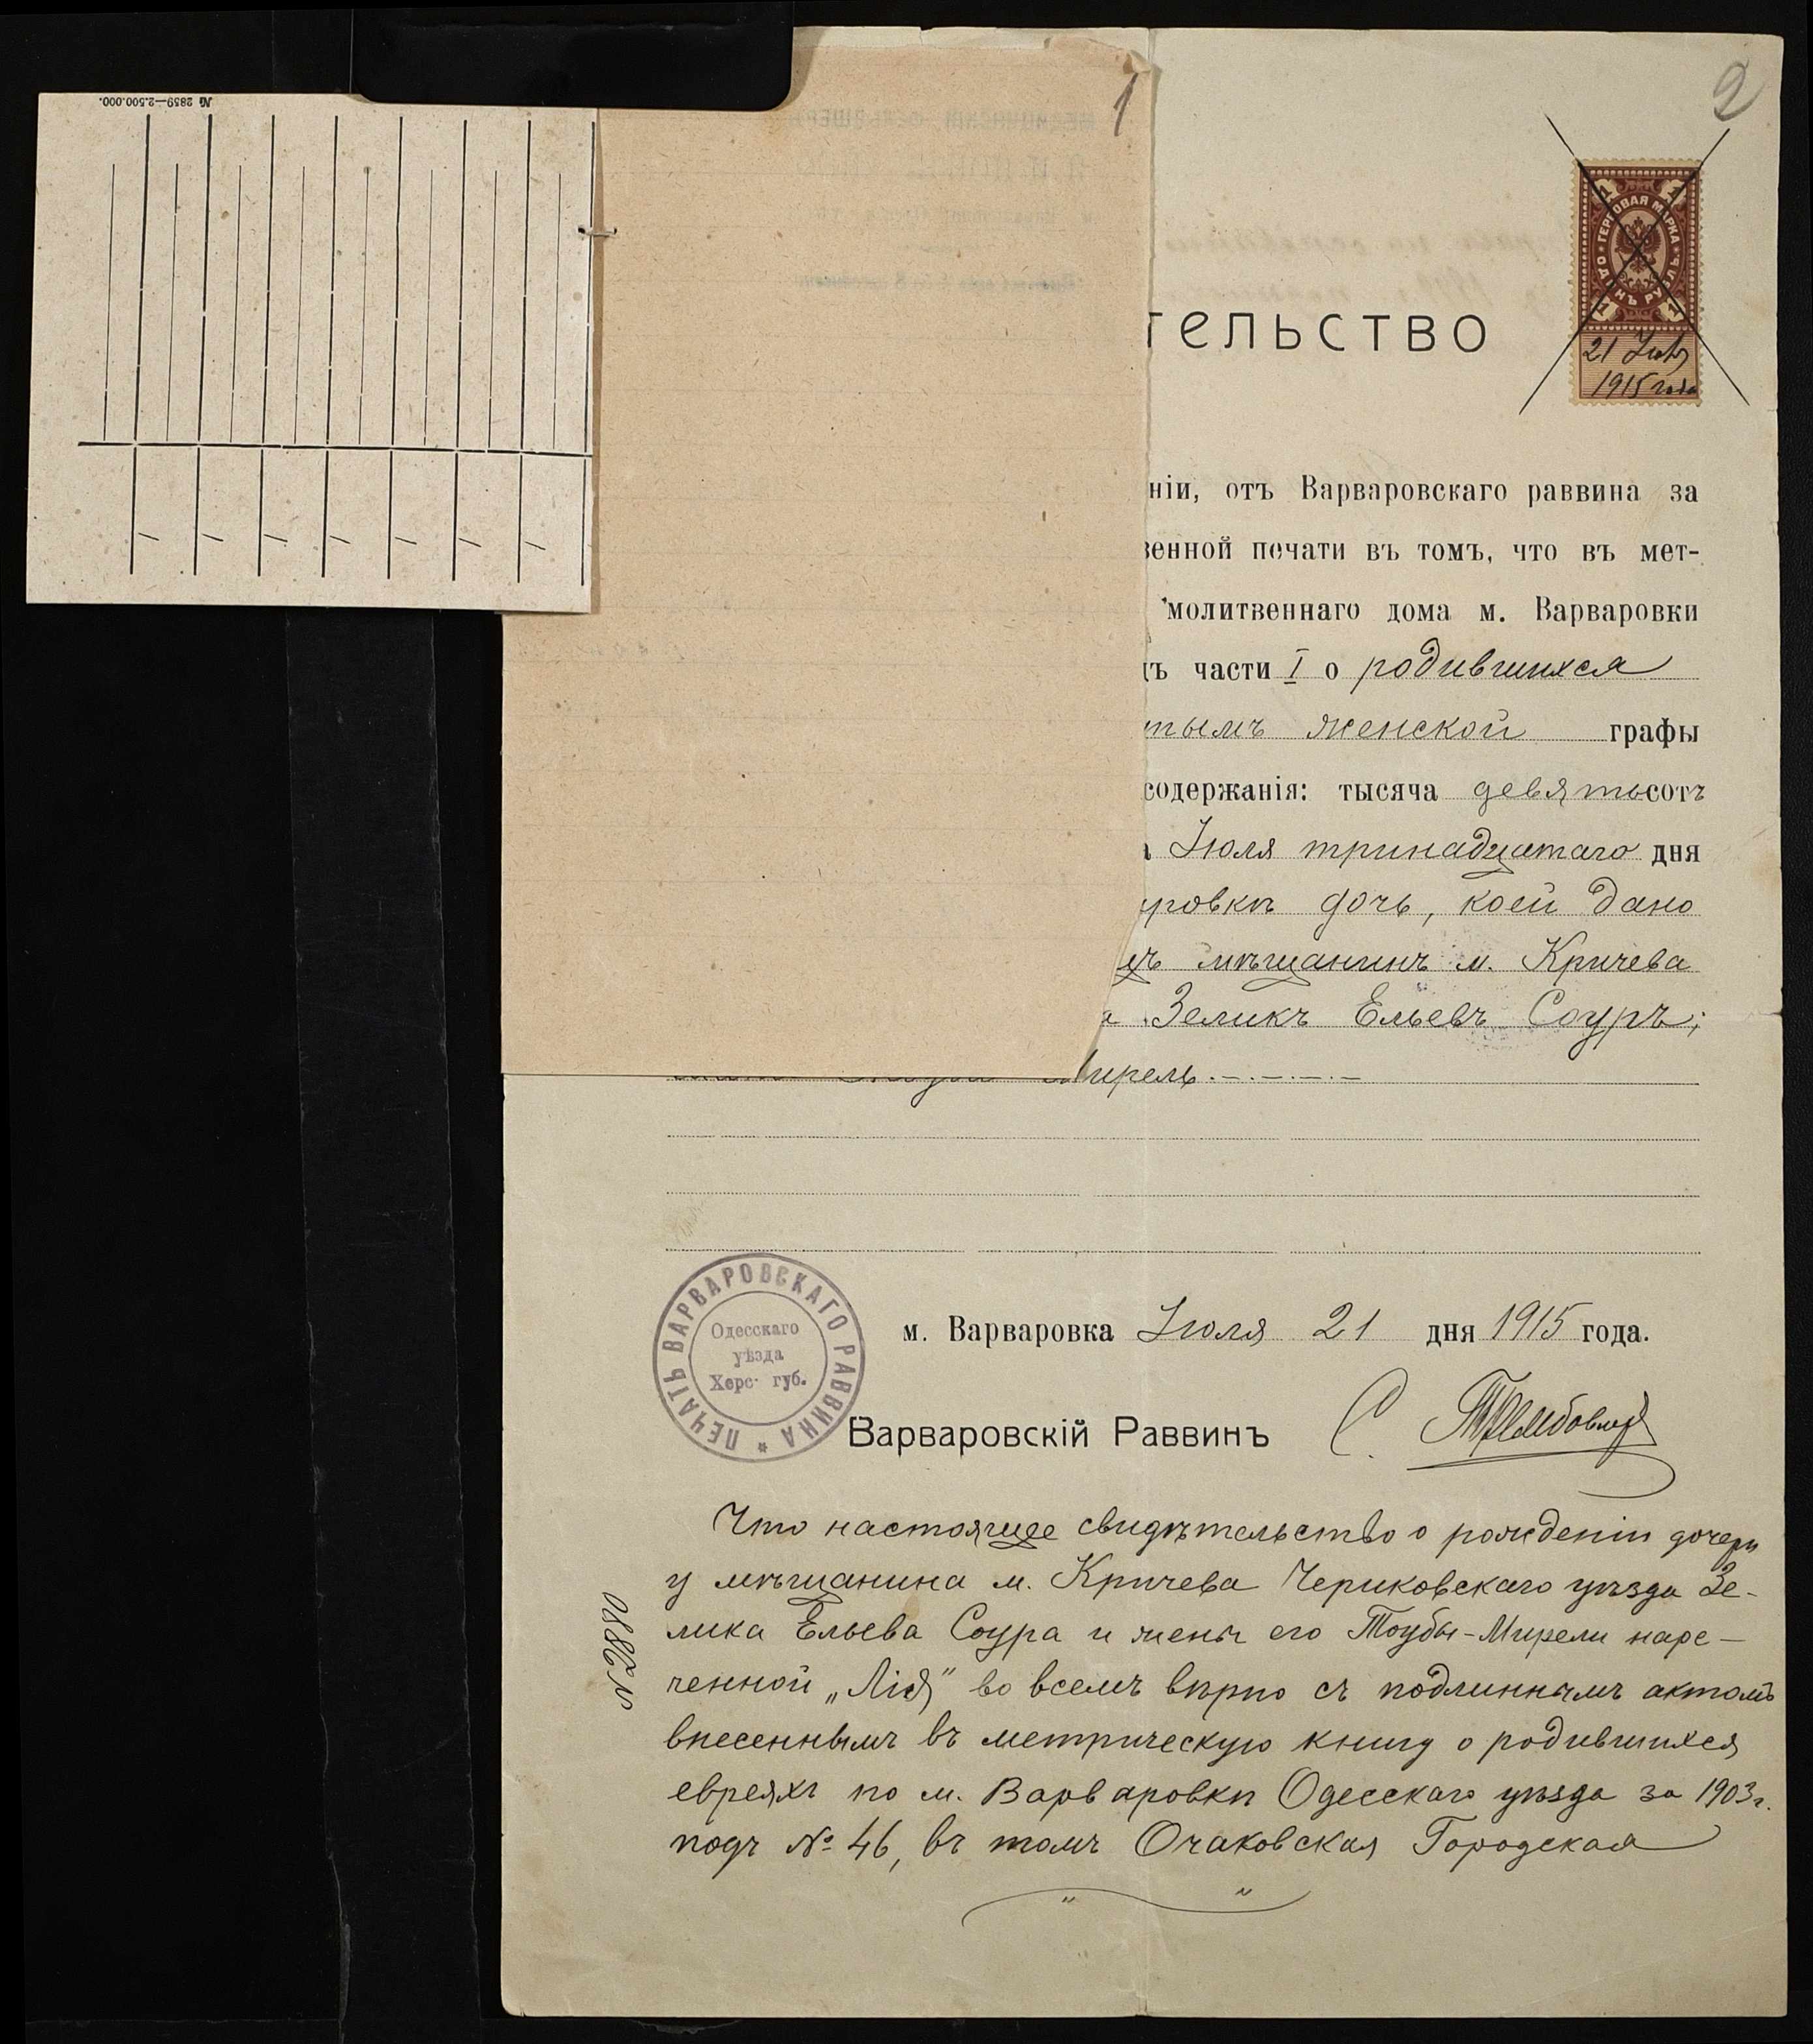 № 2859—2.500.000.
1
2
ГЕРБОВАЯ МАРКА
ОДИНЪ РУБЛЬ
21 Іюля
1915 года
тельство
ніи, отъ Варваровскаго раввина за
венной печати въ томъ, что въ мет-
молитвеннаго дома м. Варваровки
ъ части I о родившихся
тымъ женской графы
содержанія: тысяча девятьсотъ
Іюля тринадцатаго дня
ровкѣ дочь, коей дано
цъ мѣщанинъ м. Кричева
а Зеликъ Ельевъ Соуръ;
Мирель.
ПЕЧАТЬ ВАРВАРОВСКАГО РАВВИНА *
Одесскаго
уѣзда
Херс. губ.
м. Варваровка Іюля 21 дня 1915 года.
Варваровскій Раввинъ С.
Что настоящее свидѣтельство о рожденіи дочери
у мѣщанина м. Кричева Чериковскаго уѣзда Зе-
лика Ельева Соура и жены его Тоубы-Мирели наре-
ченной „Лія" во всемъ вѣрно съ подлиннымъ актомъ
внесеннымъ въ метрическую книгу о родившихся
евреяхъ по м. Варваровкѣ Одесскаго уѣзда за 1903 г.
подъ № 46, въ томъ Очаковская Городская